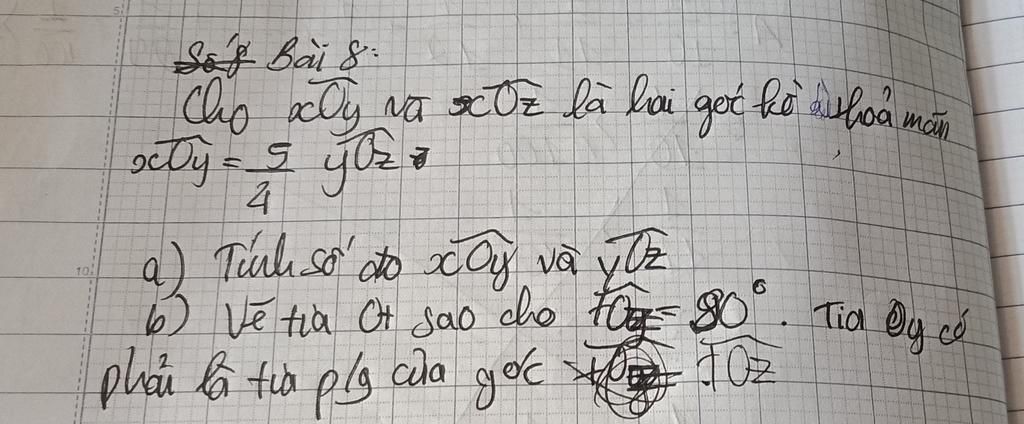 Bài 8:
Cho xOy và xOz là hai góc kề thoả mãn
xOy = 5/4 yOz
a) Tính số đo xOy và yOz
b) Vẽ tia Ot sao cho tOy = 80°. Tia Oy có
phải là tia p/g của góc tOz